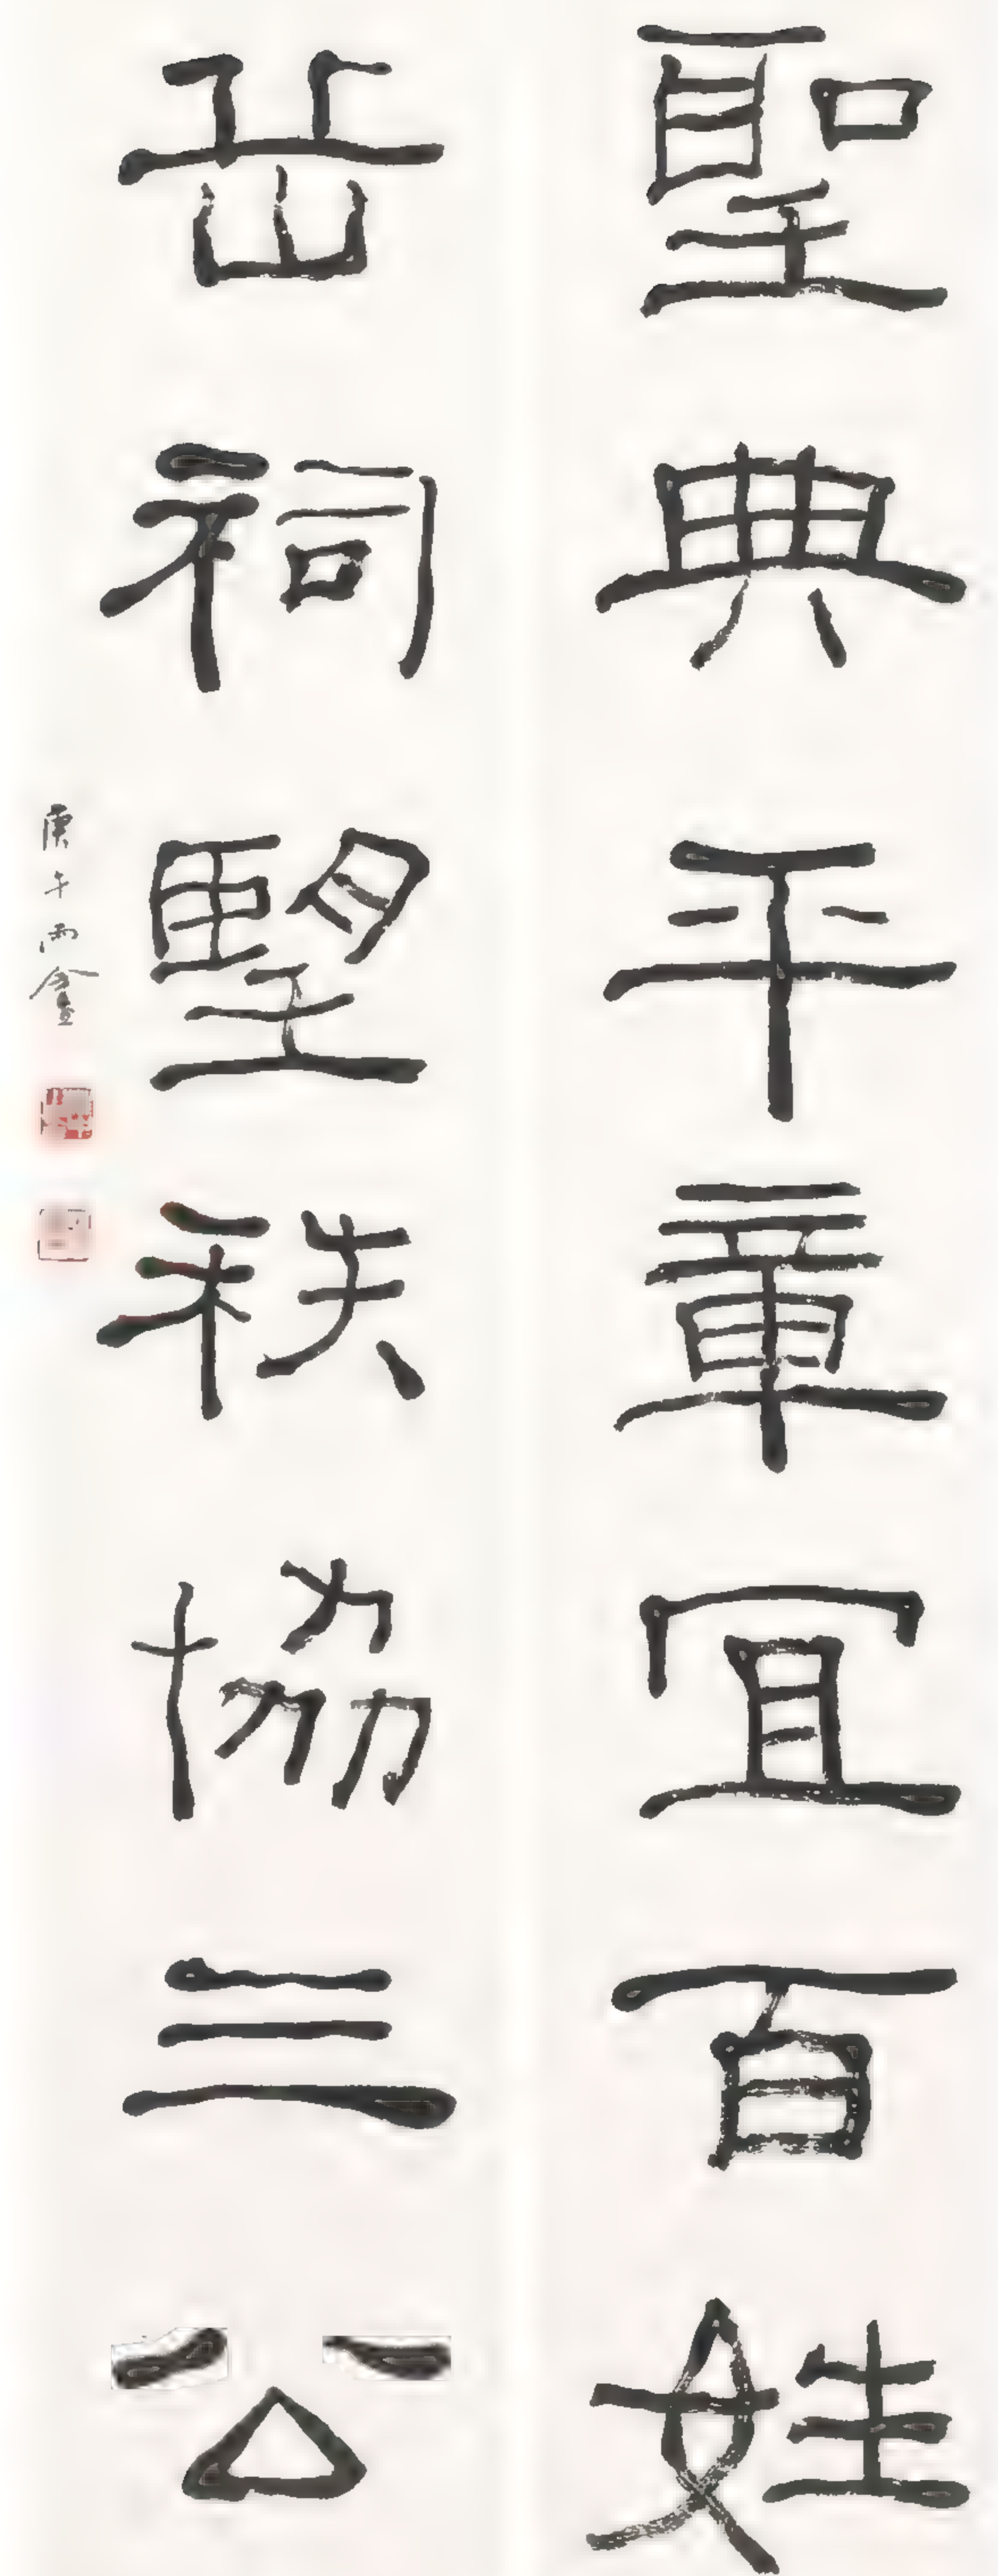 聖典平章宜百姓
岳祠朢秩協三公
庚午雨盦